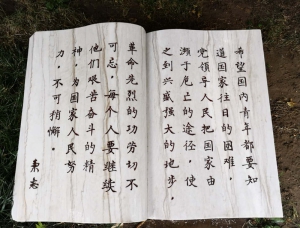 希望国内青年都要知
道国家往日的困难，
党领导人民把国家由
濒于危亡的途径，使
之到兴盛强大的地步，
革命先烈的功劳切不
可忘，每个人要继续
他们艰苦奋斗的精
神，为国家人民努
力，不可稍懈。
志